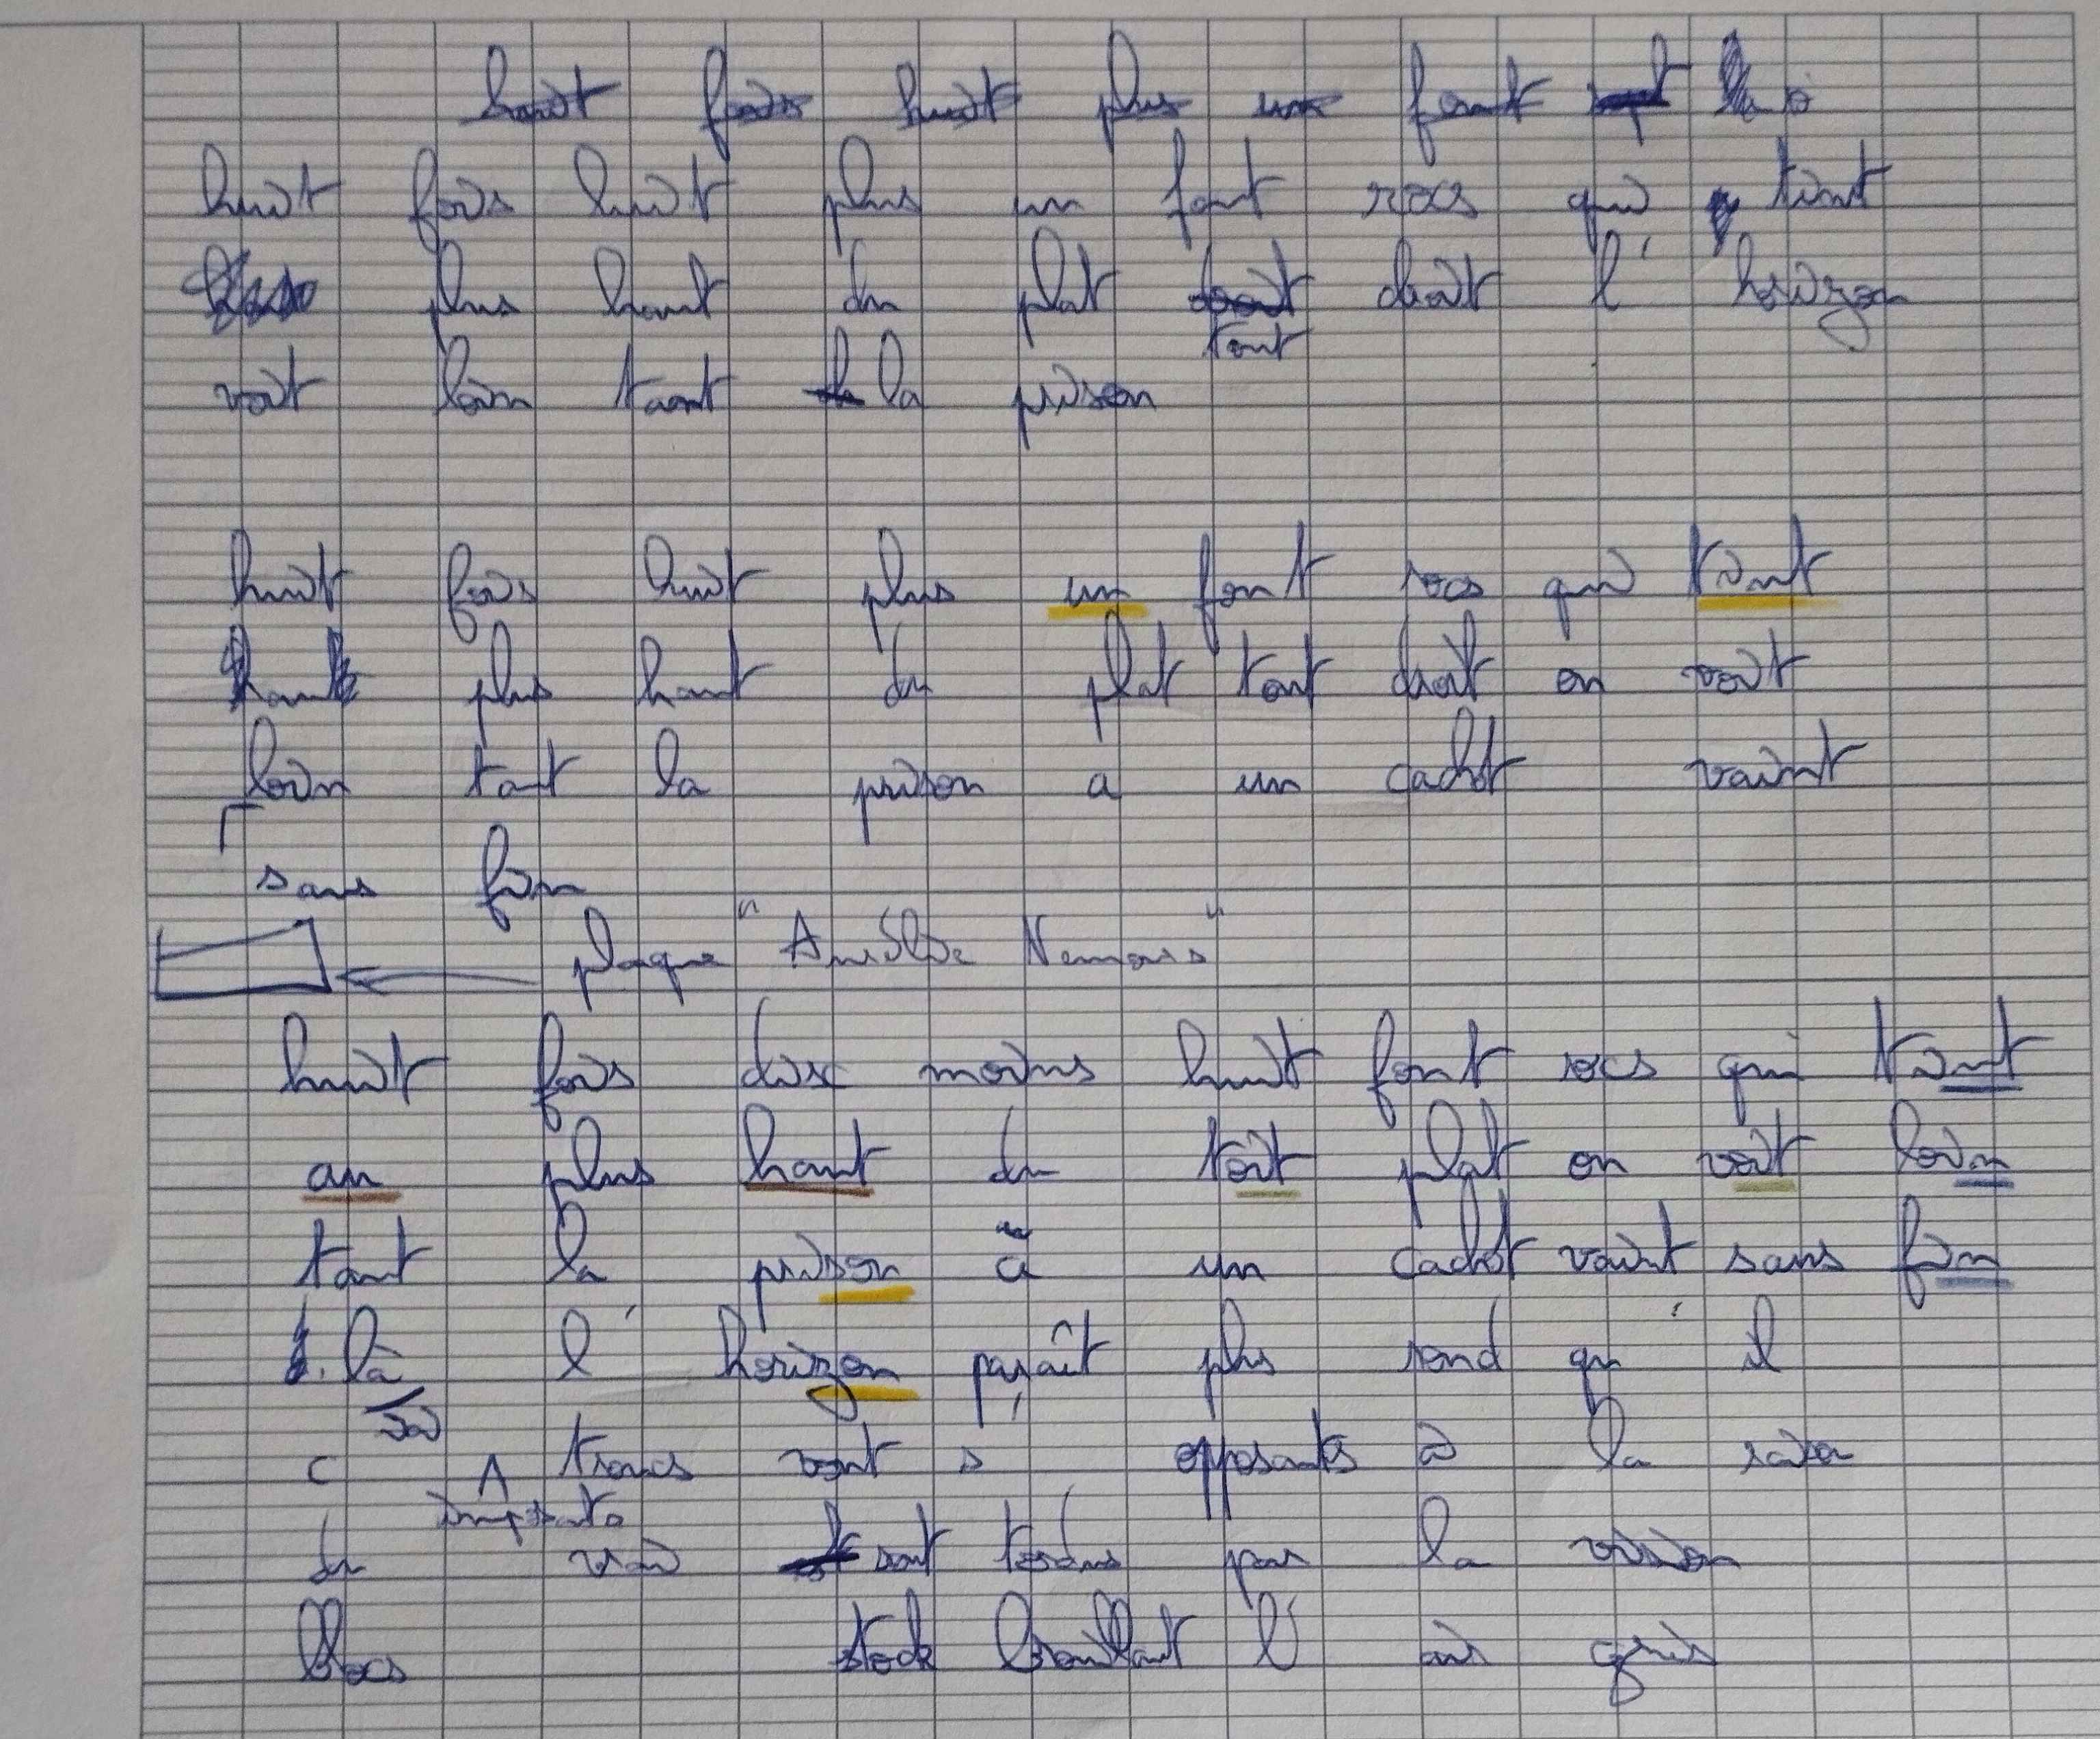 huit fois huit plus un font
huit fois huit plus un font rocs qui tint
plus haut du plat droit l' horizon
tout
voit loin tant la prison
huit fois huit plus un font rocs qui tint
haut plus haut du plat tout droit on voit
loin tant la prison a un cachot vaint
sans fin
plaque " Nemoss"
huit fois dix moins huit font rocs qui tint
au plus haut du toit plat on voit loin
tant la prison a un cachot vaint sans fin
là l' horizon paraît plus rond qu' il
C A troncs vont s opposants à la
du vrai sont tordus par la vision
blocs stock brouillant l' air gris